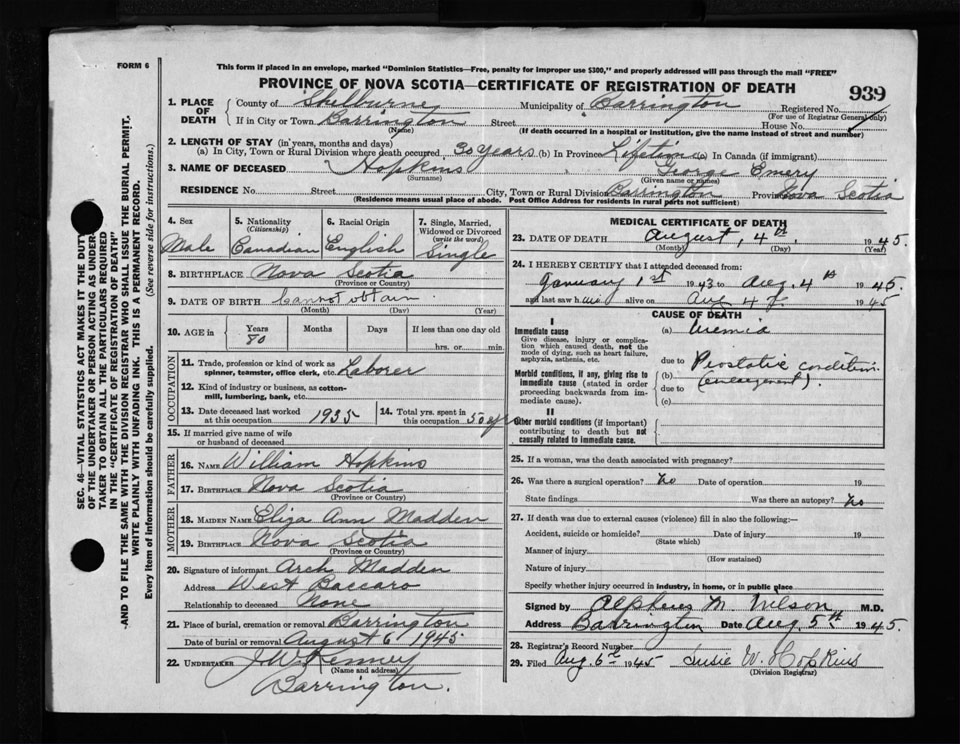 FORM 6
This form if placed in an envelope, marked "Dominion Statistics—Free, penalty for improper use $300," and properly addressed will pass through the mail "FREE"
PROVINCE OF NOVA SCOTIA—CERTIFICATE OF REGISTRATION OF DEATH
939
1. PLACE OF DEATH
County of Shelburne Municipality of Barrington Registered No.
(For use of Registrar General only)
If in City or Town Barrington Street House No.
(Name) (If death occurred in a hospital or institution, give the name instead of street and number)
2. LENGTH OF STAY (in years, months and days)
(a) In City, Town or Rural Division where death occurred 30 years (b) In Province Lifetime (c) In Canada (if immigrant)
3. NAME OF DECEASED Hopkins George Emery
(Surname) (Given name or names)
RESIDENCE No. Street City, Town or Rural Division Barrington Province Nova Scotia
(Residence means usual place of abode. Post Office Address for residents in rural parts not sufficient)
4. Sex
Male
5. Nationality
(Citizenship)
Canadian
6. Racial Origin
English
7. Single, Married, Widowed or Divorced
(write the word)
Single
8. BIRTHPLACE Nova Scotia
(Province or Country)
9. DATE OF BIRTH Cannot obtain
(Month) (Day) (Year)
10. AGE in Years Months Days If less than one day old
80 hrs. or min.
OCCUPATION
11. Trade, profession or kind of work as
spinner, teamster, office clerk, etc. Laborer
12. Kind of industry or business, as cotton-
mill, lumbering, bank, etc.
13. Date deceased last worked
at this occupation 1935
14. Total yrs. spent in
this occupation 50 yrs
15. If married give name of wife
or husband of deceased
FATHER
16. NAME William Hopkins
17. BIRTHPLACE Nova Scotia
(Province or Country)
MOTHER
18. MAIDEN NAME Eliza Ann Madden
19. BIRTHPLACE Nova Scotia
(Province or Country)
20. Signature of informant Arch Madden
Address West Baccaro
Relationship to deceased None
21. Place of burial, cremation or removal Barrington
Date of burial or removal August 6 1945
22. UNDERTAKER J. W. Kenney
(Name and address)
Barrington.
MEDICAL CERTIFICATE OF DEATH
23. DATE OF DEATH August, 4th 1945.
(Month) (Day)
24. I HEREBY CERTIFY that I attended deceased from:
January 1st 1943 to Aug. 4th 1945
and last saw him alive on Aug 4th 1945
CAUSE OF DEATH
I
Immediate cause
Give disease, injury or complica-
tion which caused death, not the
mode of dying, such as heart failure,
asphyxia, asthenia, etc.
(a) Uremia
due to
Morbid conditions, if any, giving rise to
immediate cause (stated in order
proceeding backwards from im-
mediate cause).
(b) Prostatic condition.
(enlargement).
due to
(c)
II
Other morbid conditions (if important)
contributing to death but not
causally related to immediate cause.
25. If a woman, was the death associated with pregnancy?
26. Was there a surgical operation? No Date of operation 19
State findings Was there an autopsy? No
27. If death was due to external causes (violence) fill in also the following:—
Accident, suicide or homicide? Date of injury 19
(State which)
Manner of injury
(How sustained)
Nature of injury
Specify whether injury occurred in industry, in home, or in public place
Signed by Alpheus M. Wilson M.D.
Address Barrington Date Aug. 5th 1945.
28. Registrar's Record Number
29. Filed Aug. 6th 1945 Susie W. Hopkins
(Division Registrar)
SEC. 46—VITAL STATISTICS ACT MAKES IT THE DUTY
OF THE UNDERTAKER OR PERSON ACTING AS UNDER-
TAKER TO OBTAIN ALL THE PARTICULARS REQUIRED
IN THE "CERTIFICATE OF REGISTRATION OF DEATH"
AND TO FILE THE SAME WITH THE DIVISION REGISTRAR WHO SHALL ISSUE THE BURIAL PERMIT.
WRITE PLAINLY WITH UNFADING INK. THIS IS A PERMANENT RECORD.
Every item of information should be carefully supplied. (See reverse side for instructions.)